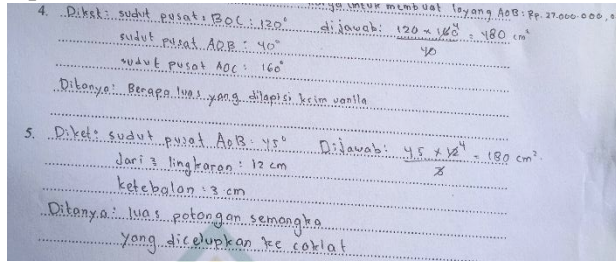 untuk membuat loyang AOB : Rp. 27.000.000,0
4. Diket : sudut pusat : BOC : 120° dijawab : 120 x 160 4 = 480 cm²
sudut pusat AOB : 40° 40
sudut pusat AOC : 160°
Ditanya : Berapa luas yang dilapisi krim vanilla
5. Diket : sudut pusat AOB : 45° Dijawab : 45 x 12 4 = 180 cm².
Jari 2 lingkaran : 12 cm 3
ketebalan : 3 cm
Ditanya : luas potongan semangka
yang dicelupkan ke coklat